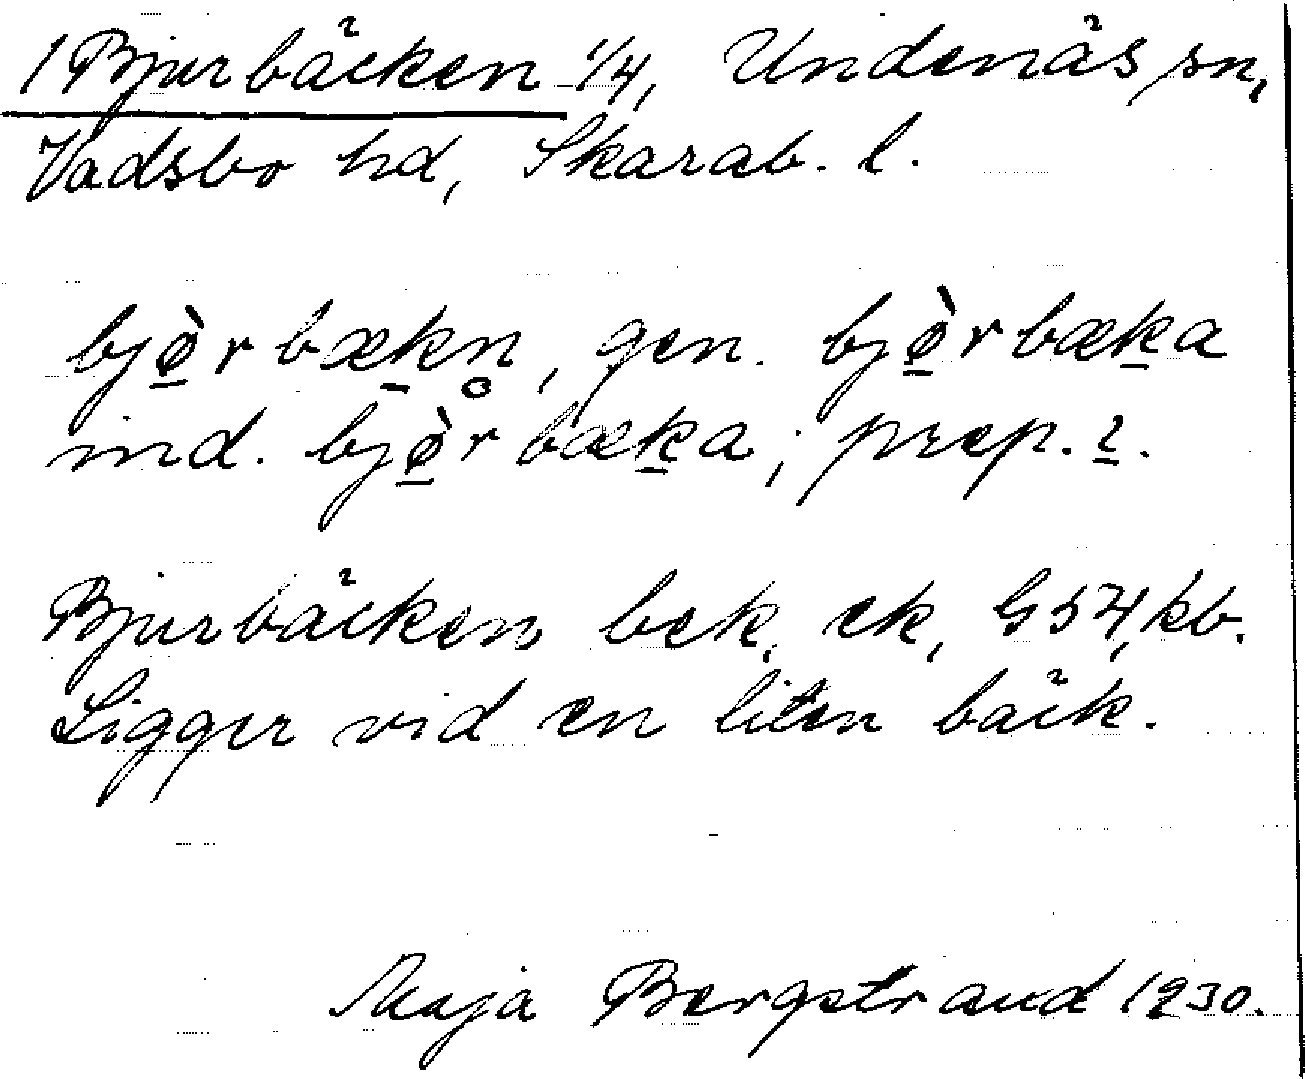 1 Bjurbäcken 1/4, Undenäs sn,
Vadsbo hd, Skarab. l.
bjø̠̀rbæk̠n̥, gen. bjø̠̀rbæk̠a
ind. bjø̠̀rbæk̠a; prep. ı̠.
Bjurbäcken bek, ek, G54, kb.
Ligger vid en liten bäck.
Maja Bergstrand 1930.